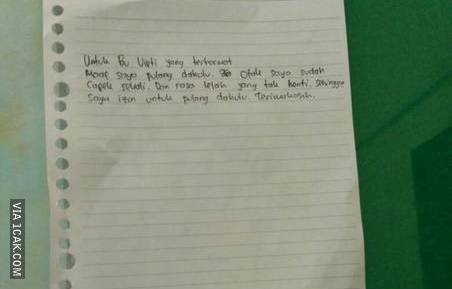 Untuk Bu Vipti yang terhormat
Maaf saya pulang dahulu. Otak saya sudah
Capek sekali. Dan rasa lelah yang tak henti. Sehingga
Saya izin untuk pulang dahulu. Terimakasih.
VIA 1CAK.COM